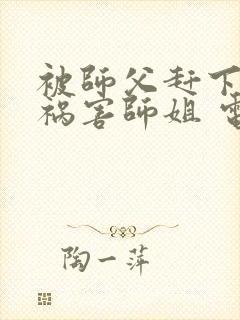 被師父赶下
祸害師姐
陶一萍